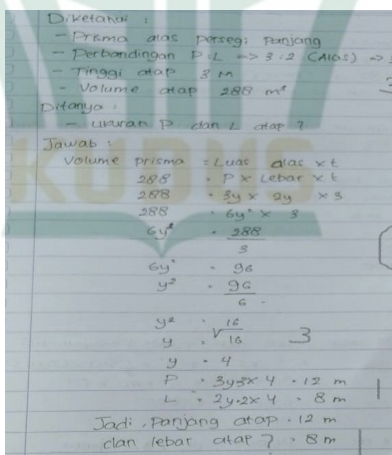 Diketahui :
- Prisma alas persegi panjang
- Perbandingan P:L => 3:2 (Alas) =>
- Tinggi atap 3 m
- Volume atap 288 m³
Ditanya :
- Ukuran P dan L atap ?
Jawab :
Volume prisma = Luas alas x t
288 = P x Lebar x t
288 = 3y x 2y x 3
288 = 6y² x 3
6y² = 288
3
6y² = 96
y² = 96
6
y² = 16
y = √16
3
y = 4
P = 3y=3x 4 = 12 m
L = 2y=2x 4 = 8 m
Jadi, Panjang atap = 12 m
dan lebar atap ? = 8 m
KUDUS